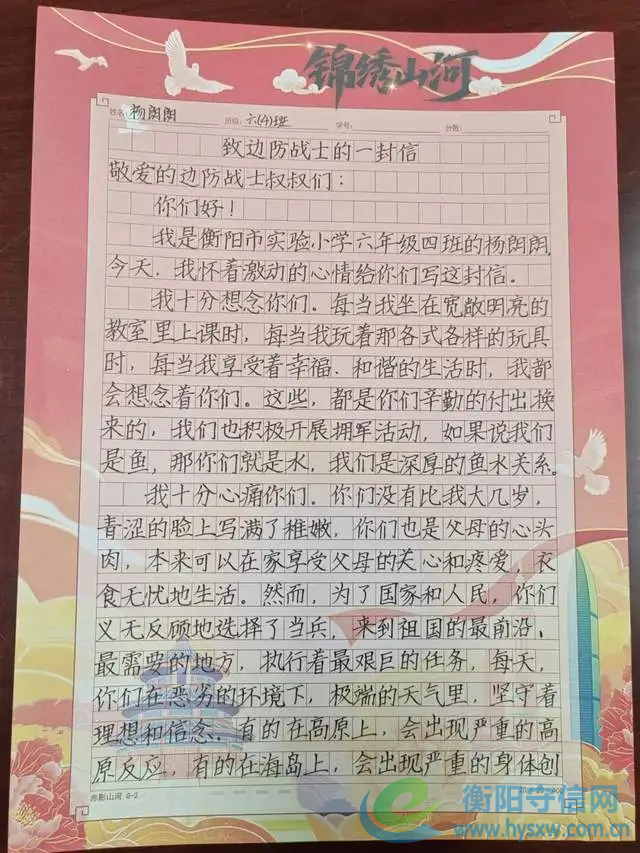 锦绣山河
姓名: 杨朗朗 班级: 六(4)班 学号: 分数:
致边防战士的一封信
敬爱的边防战士叔叔们：
你们好！
我是衡阳市实验小学六年级四班的杨朗朗,
今天，我怀着激动的心情给你们写这封信。
我十分想念你们。每当我坐在宽敞明亮的
教室里上课时，每当我玩着那各式各样的玩具
时，每当我享受着幸福、和谐的生活时，我都
会想念着你们。这些，都是你们辛勤的付出换
来的，我们也积极开展拥军活动，如果说我们
是鱼，那你们就是水，我们是深厚的鱼水关系。
我十分心痛你们。你们没有比我大几岁，
青涩的脸上写满了稚嫩，你们也是父母的心头
肉，本来可以在家享受父母的关心和疼爱，衣
食无忧地生活。然而，为了国家和人民，你们
义无反顾地选择了当兵，来到祖国的最前沿、
最需要的地方，执行着最艰巨的任务，每天，
你们在恶劣的环境下，极端的天气里，坚守着
理想和信念．有的在高原上，会出现严重的高
原反应，有的在海岛上，会出现严重的身体创
赤影山河 G-2
衡阳守信网
www.hysxw.com.cn